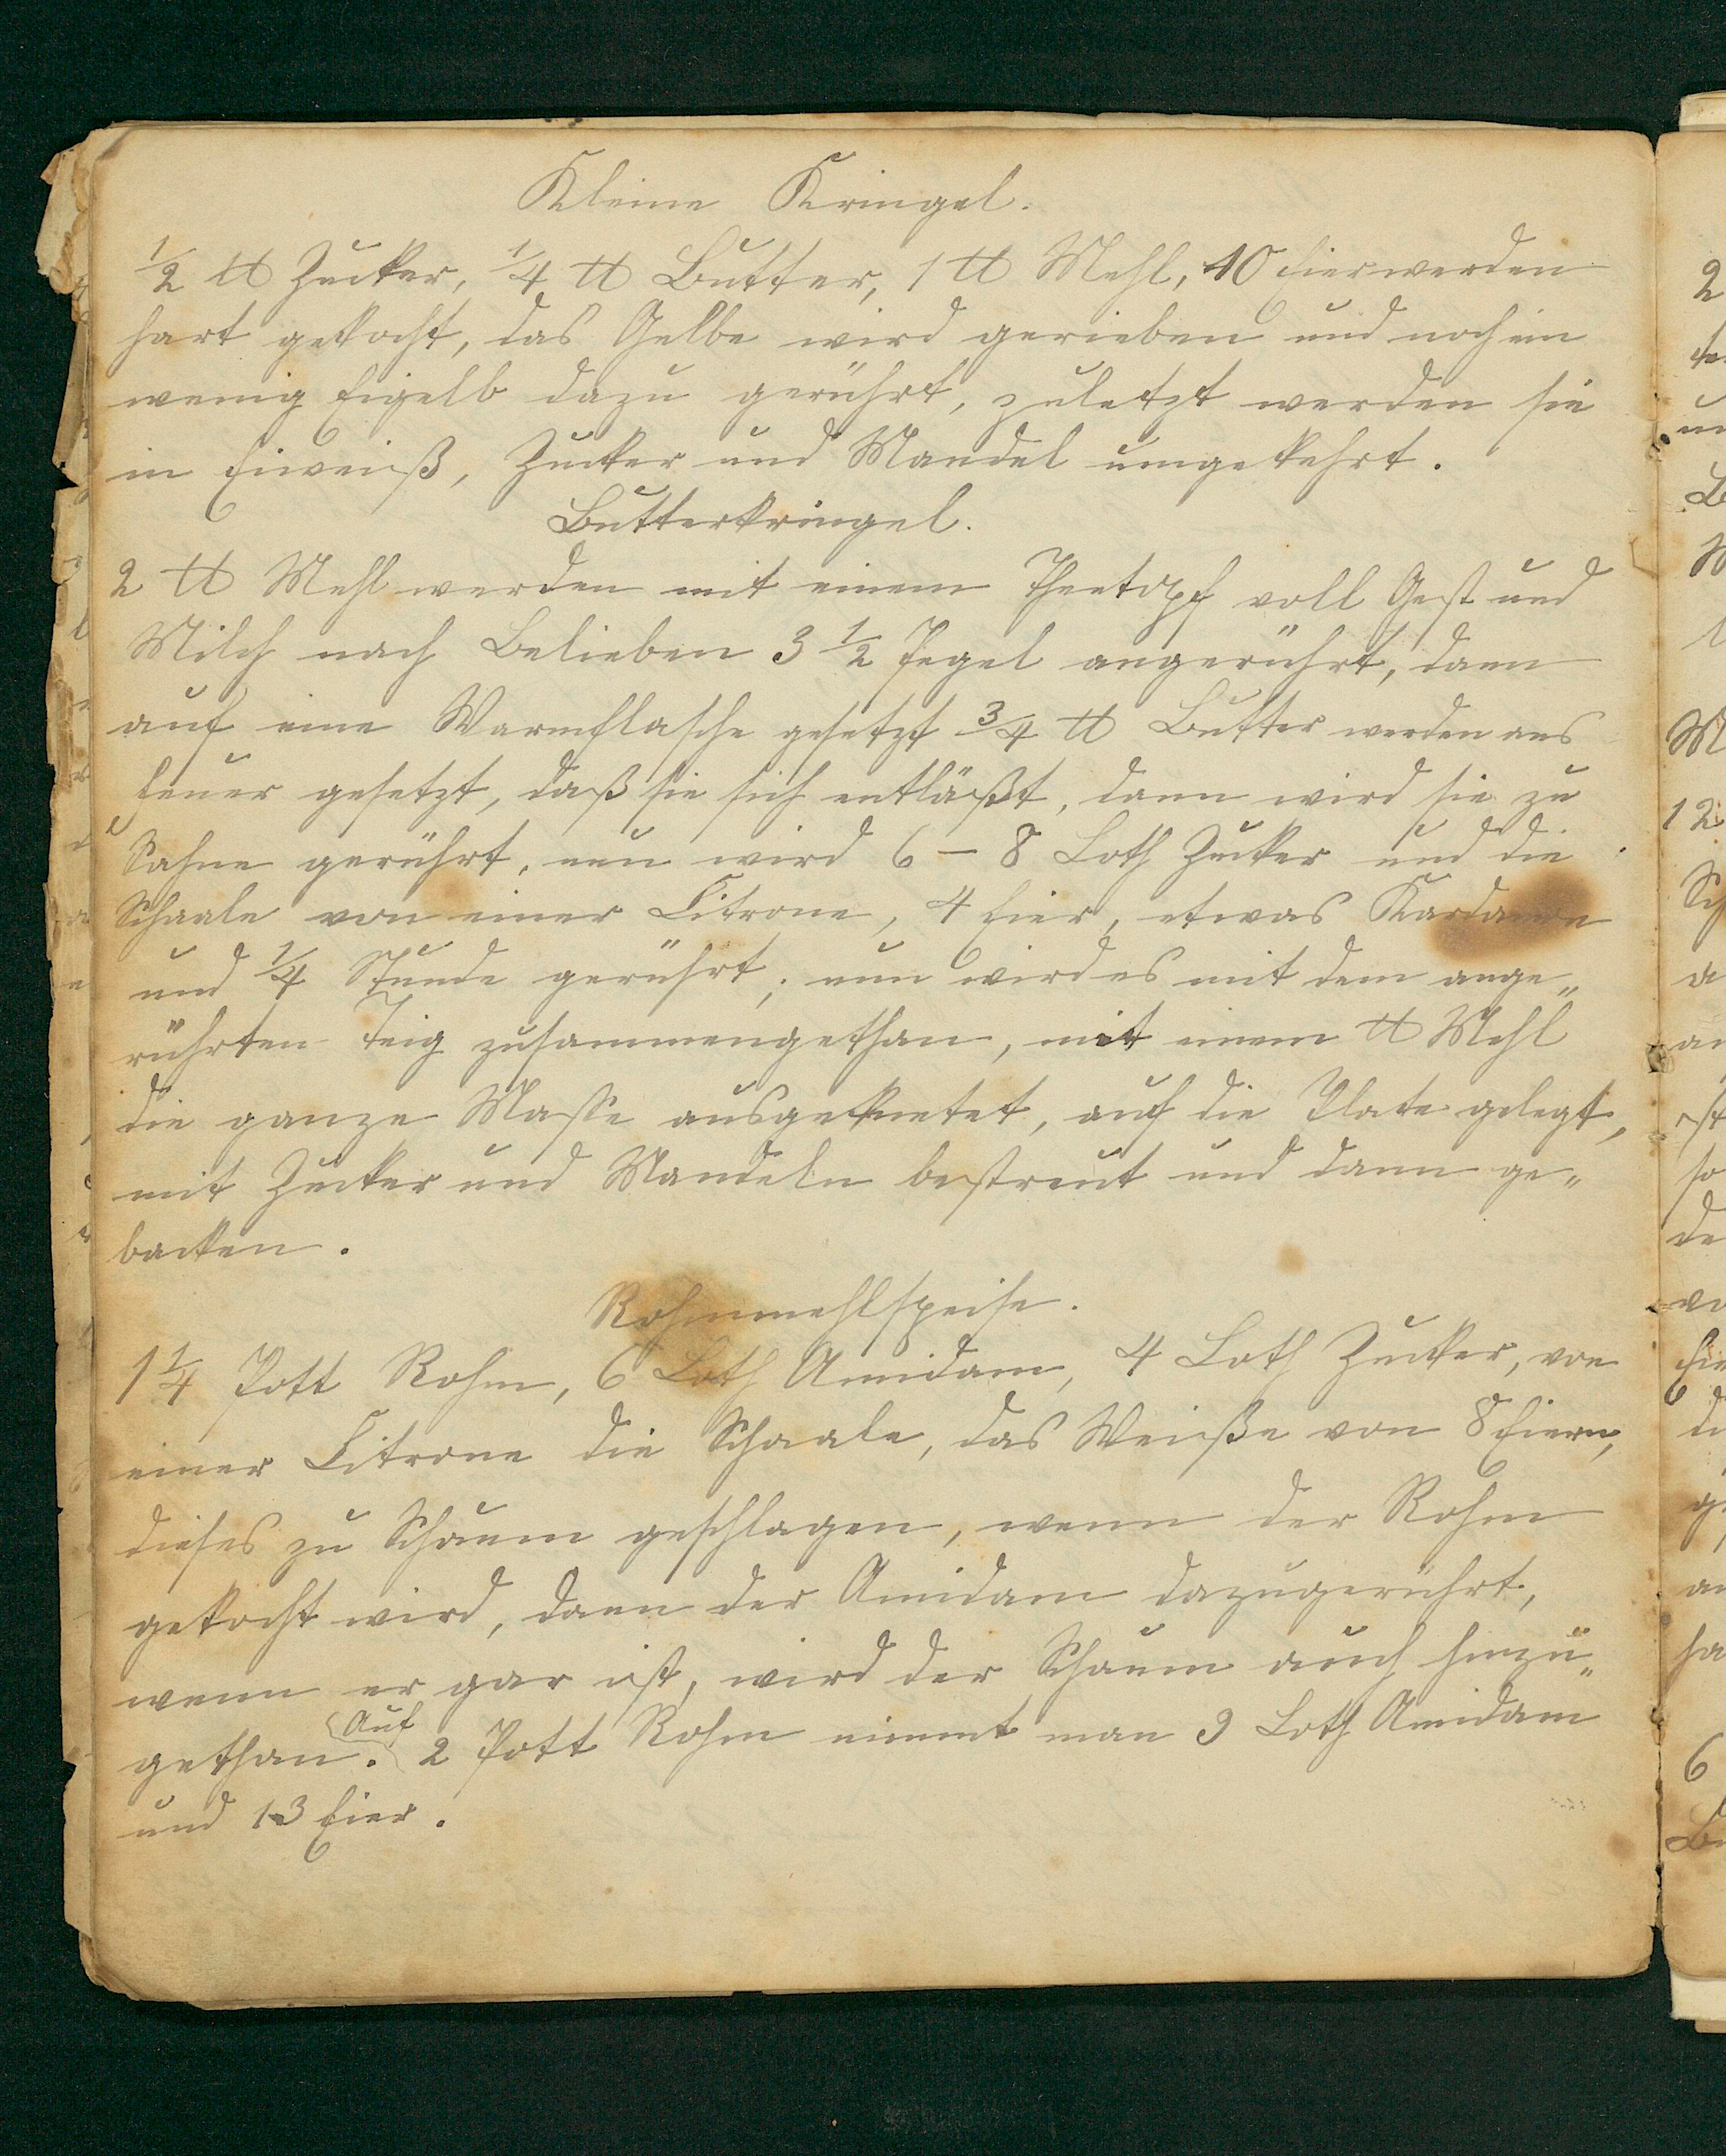 Kleine Kringel.
½ ℔ Zucker, ¼ ℔ Butter, 1 ℔ Mehl, 10 Eier werden
hart gekocht, das Gelbe wird gerieben und noch ein
wenig Eigelb dazu gerührt, zuletzt werden sie
in Eiweiß, Zucker und Mandel umgekehrt.
Butterkringel.
2 ℔ Mehl werden mit einem Theetopf voll Gest und
Milch nach Belieben 3 ½ Pegel angerührt, dann
auf eine Warmflasche gesetzt ¾ ℔ Butter werden ans
Feuer gesetzt, daß sie sich entläßt, dann wird sie zu
Sahne gerührt, nun wird 6 – 8 Loth Zucker und die
Schaale von einer Citrone, 4 Eier, etwas Kardamon
und ¼ Stunde gerührt; nun wird es mit dem ange„
rührten Teig zusammengethan, mit einem ℔ Mehl
die ganze Masse ausgeknetet, auf die Plate gelegt,
mit Zucker und Mandeln bestreut und dann ge„
backen.
Rohmmehlspeise.
1 ¼ Pott Rohm, 6 Loth Amidam, 4 Loth Zucker, von
einer Citrone die Schaale, das Weiße von 8 Eiern,
dieses zu Schaum geschlagen, wenn der Rohm
gekocht wird, dann der Amidam dazugerührt,
wenn er gar ist, wird der Schaum auch hinzu„
gethan. Auf 2 Pott Rohm nimmt man 9 Loth Amidam
und 13 Eier.